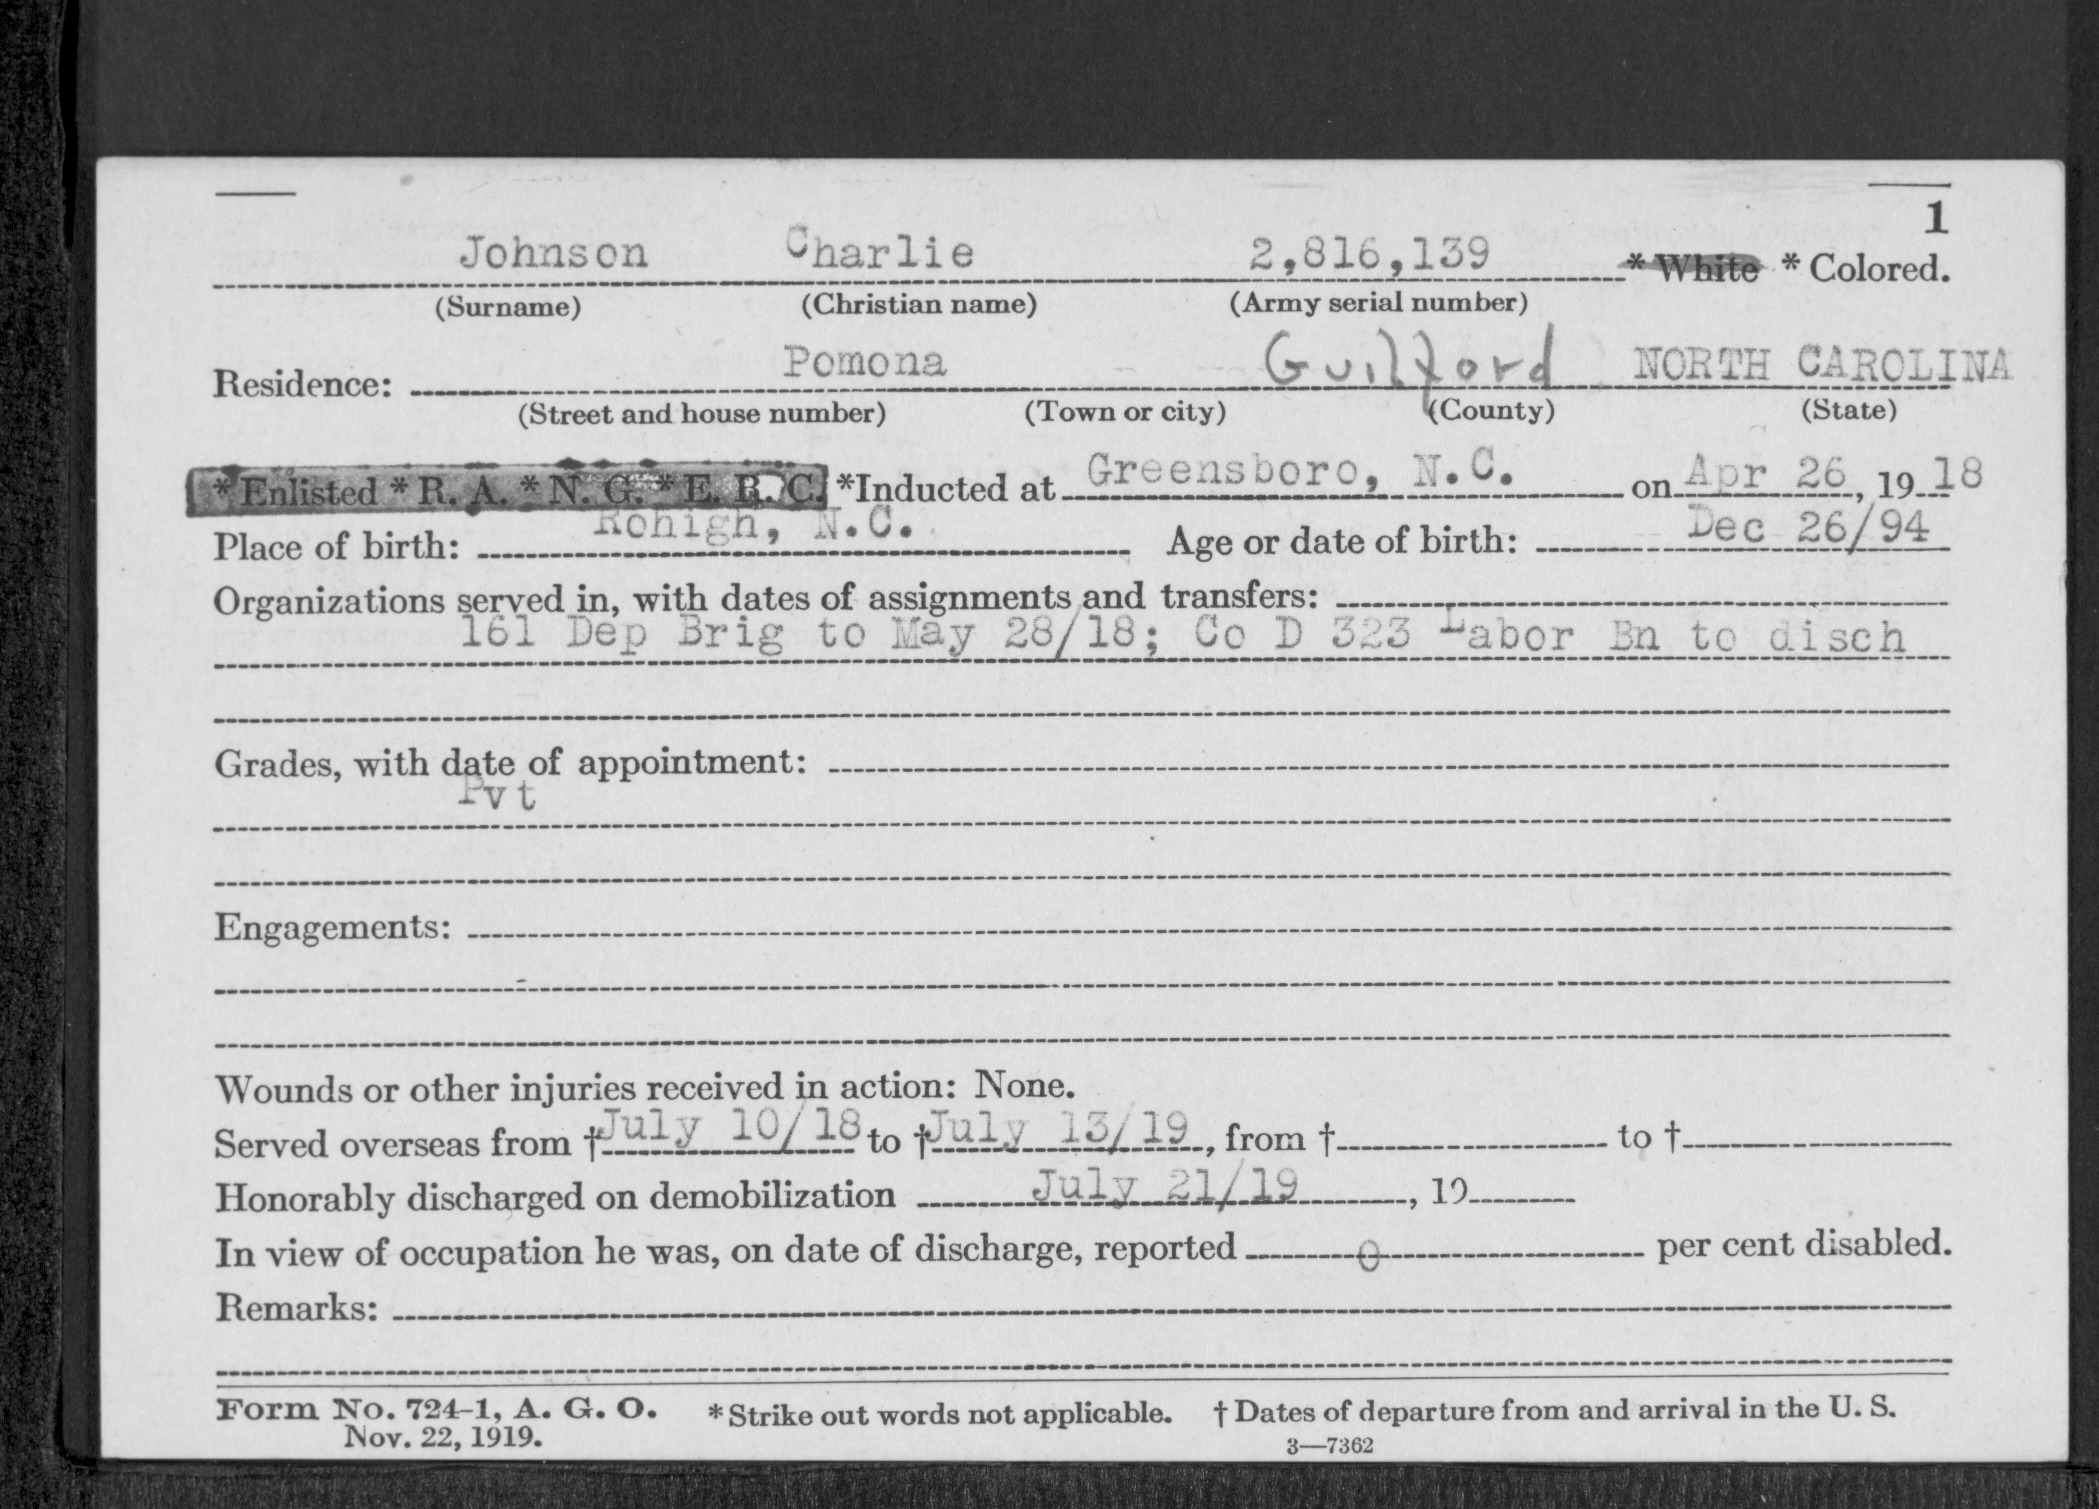 1
Johnson Charlie 2,816,139 * White * Colored.
(Surname) (Christian name) (Army serial number)
Residence: Pomona Guilford NORTH CAROLINA
(Street and house number) (Town or city) (County) (State)
*Enlisted *R. A. *N. G. *E. R. C. *Inducted at Greensboro, N.C. on Apr 26, 1918
Place of birth: Rohigh, N.C. Age or date of birth: Dec 26/94
Organizations served in, with dates of assignments and transfers:
161 Dep Brig to May 28/18; Co D 323 Labor Bn to disch
Grades, with date of appointment:
Pvt
Engagements:
Wounds or other injuries received in action: None.
Served overseas from †July 10/18 to †July 13/19, from † to †
Honorably discharged on demobilization July 21/19, 19
In view of occupation he was, on date of discharge, reported 0 per cent disabled.
Remarks:
Form No. 724-1, A. G. O. *Strike out words not applicable. † Dates of departure from and arrival in the U. S.
Nov. 22, 1919. 3—7362